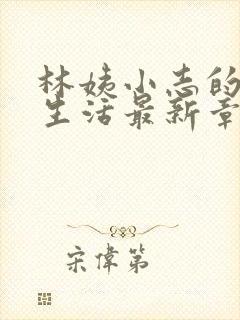 林姨小志的
生活最新章
宋偉第